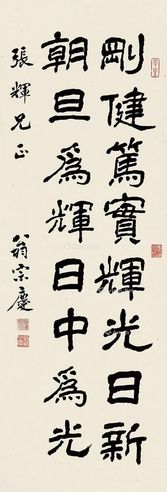 剛健篤實輝光日新
朝旦為輝日中為光
張輝兄正
翁宗慶